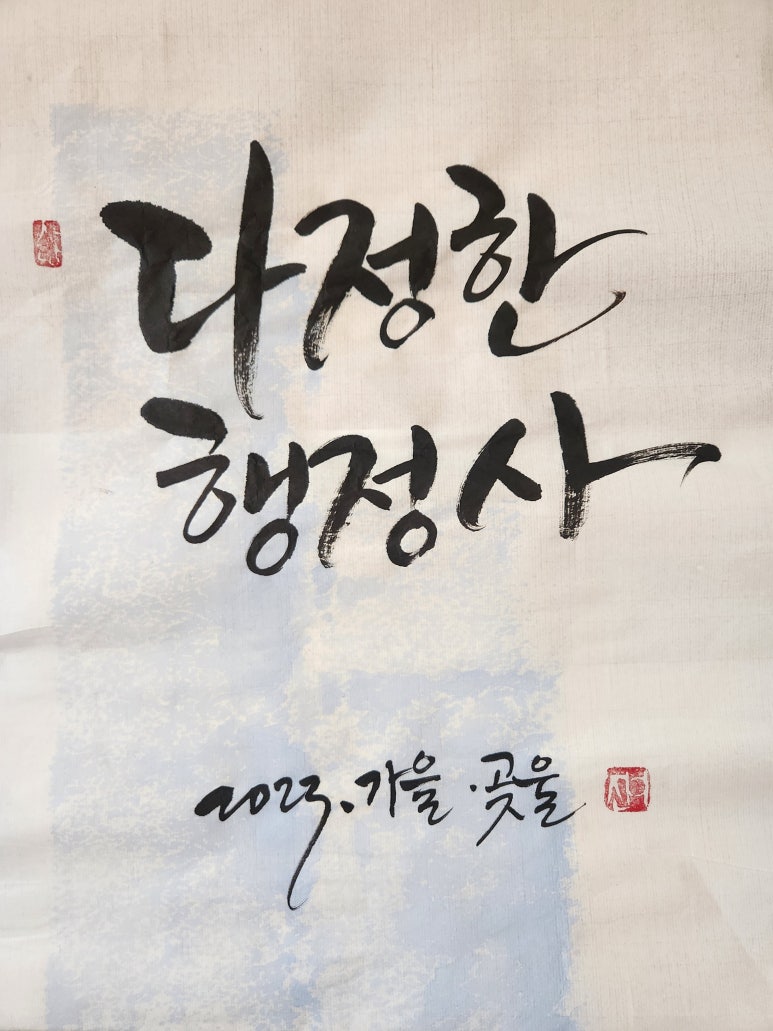 다정한
행정사
2023. 가을 · 곶울